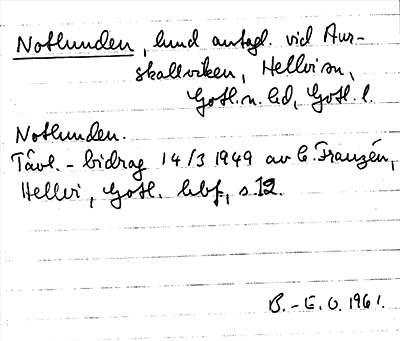 Notlunden, lund antagl. vid Aur-
skallviken, Hellvi sn,
Gotl. n. hd, Gotl. l.
Notlunden.
Tävl.-bidrag 14/3 1949 av C. Franzén,
Hellvi, Gotl. hbf, s.12.
B.-E. O. 1961.